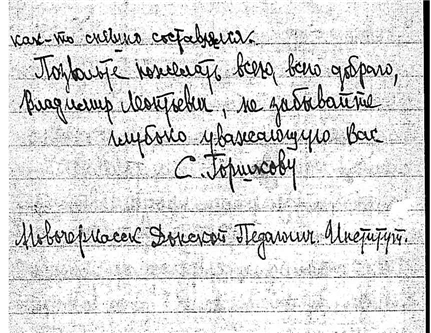 как-то спешно составлялся.
Позвольте пожелать всего, всего доброго,
Владимир Леонтьевич, не забывайте
глубоко уважающую Вас
С. Горшкову
Новочеркасск Донской Педагогич. Институт.